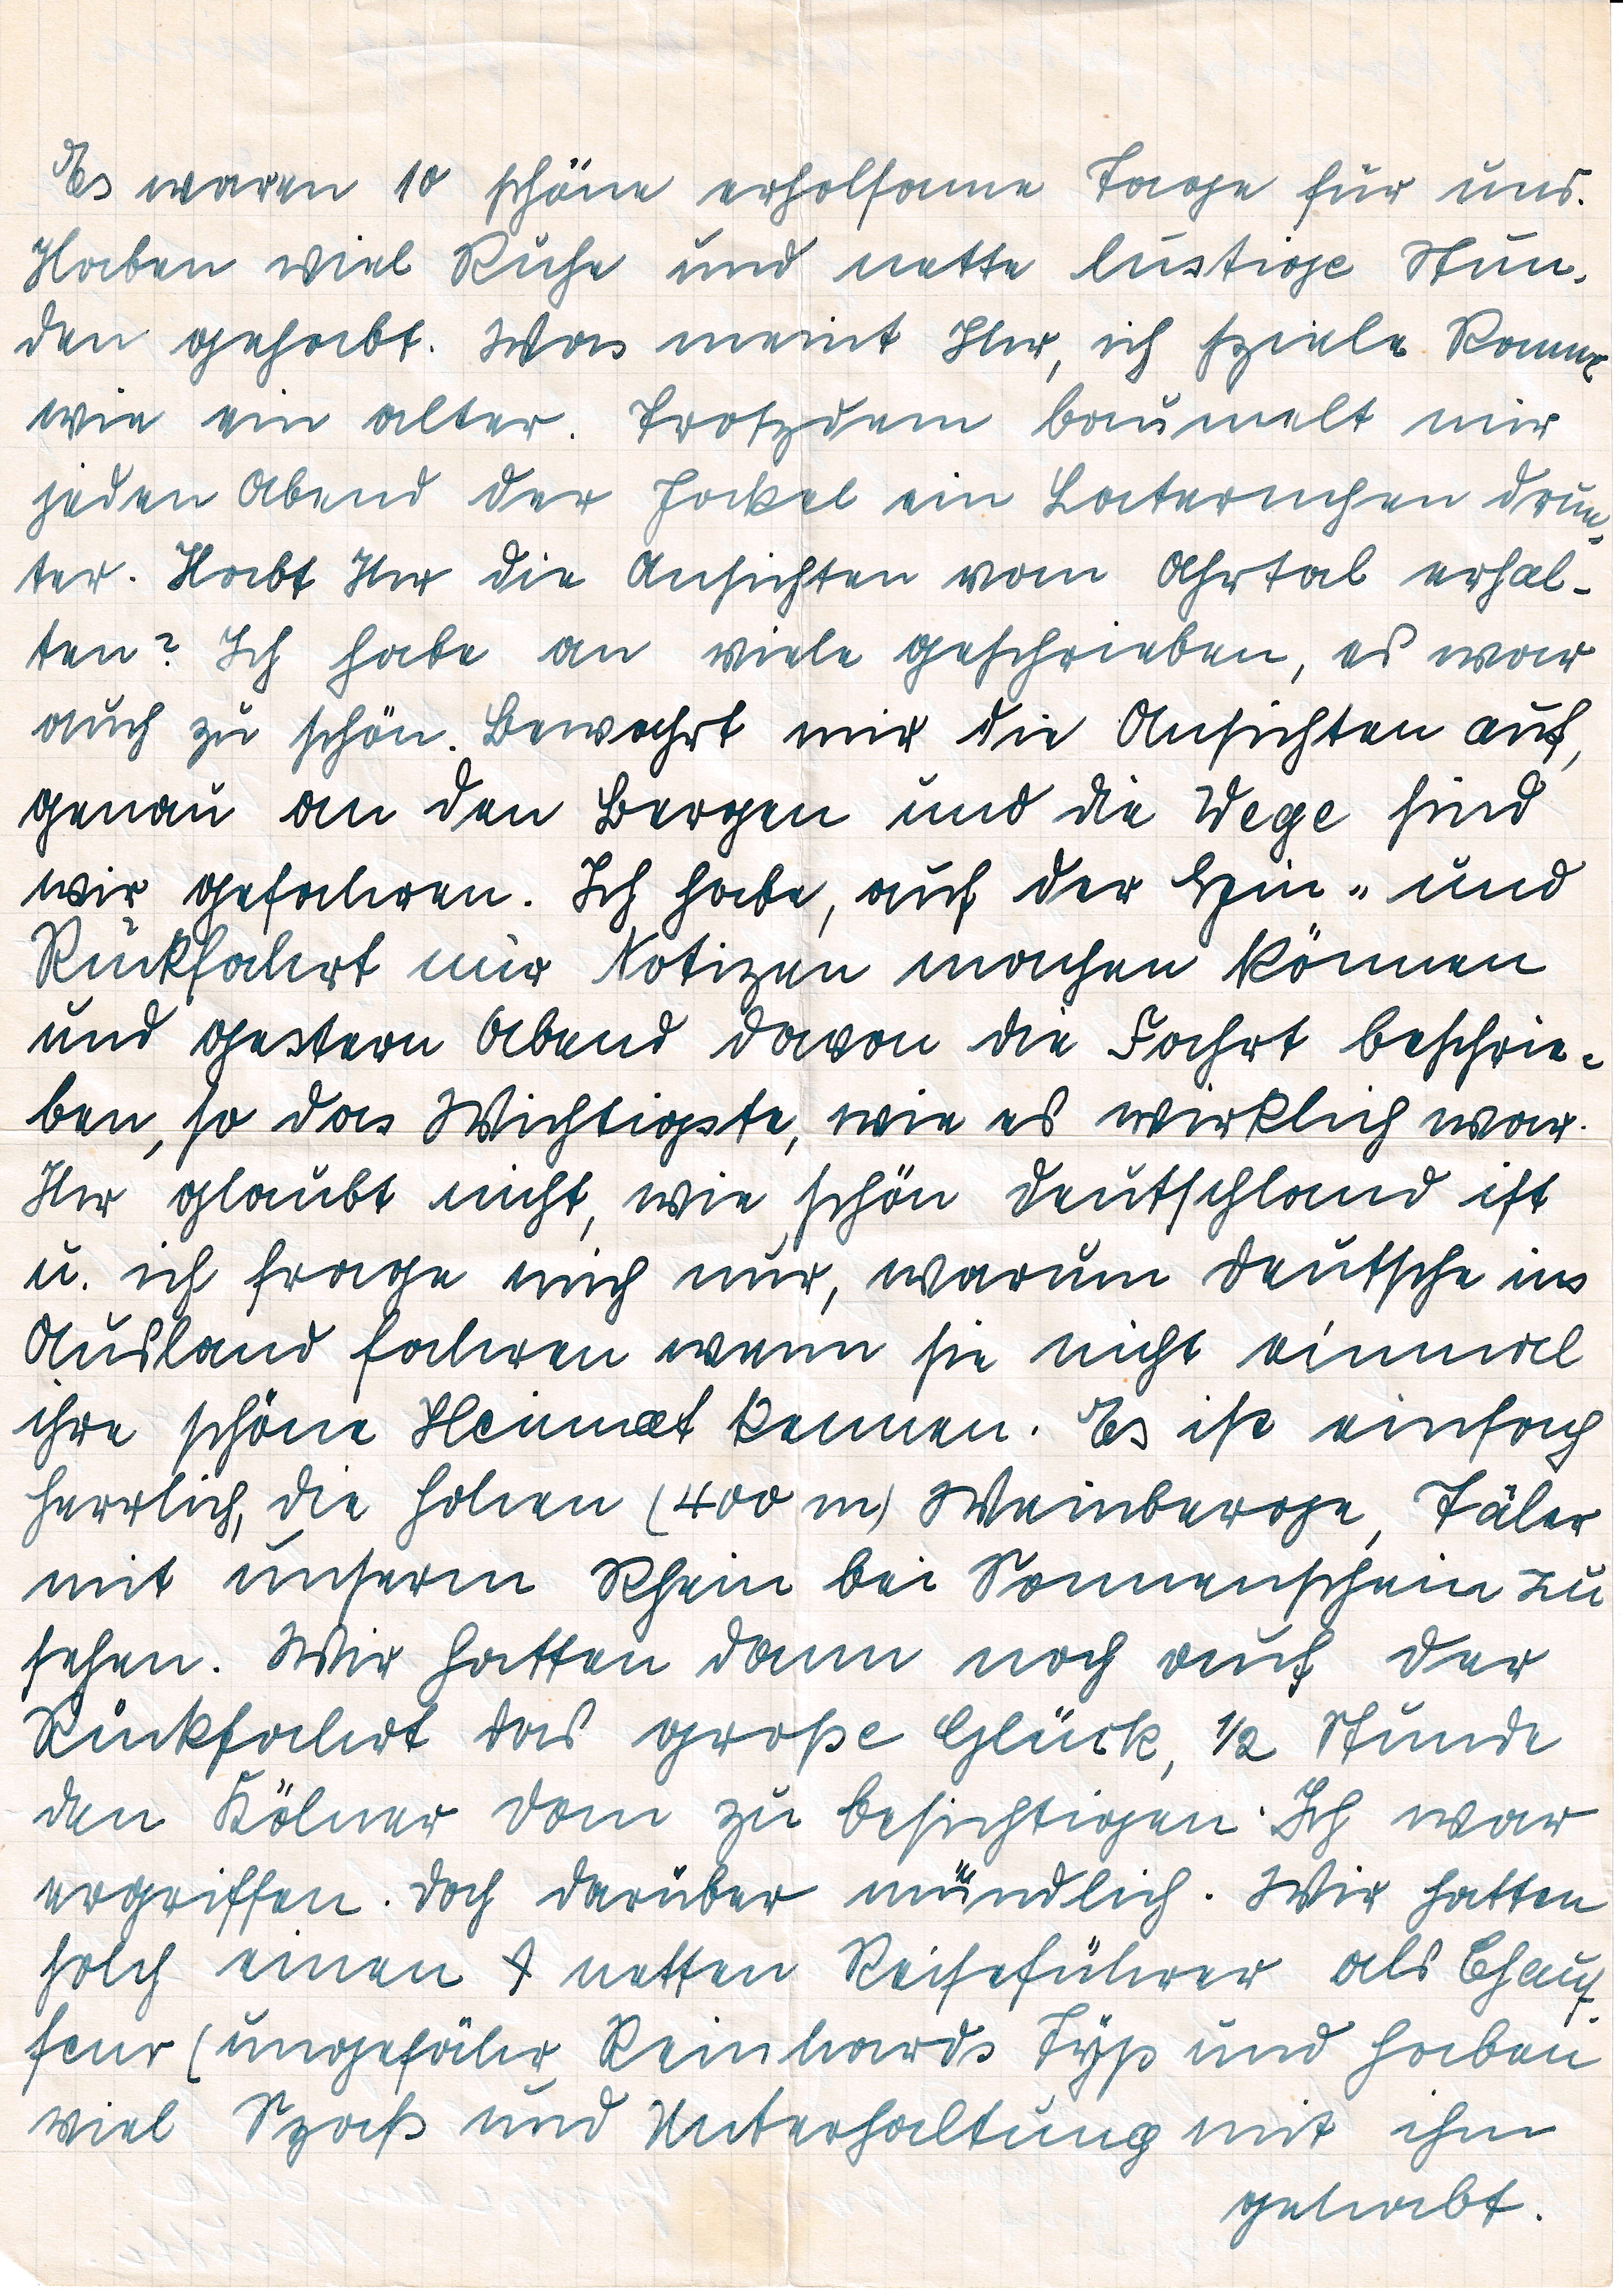 Es waren 10 schöne erholsame Tage für uns.
Haben viel Ruhe und nette lustige Stun-
den gehabt. Was meint Ihr, ich spiele Romme
wie ein alter. Trotzdem baumelt mir
jeden Abend der ein Laternchen drun-
ter. Habt Ihr die Ansichten vom Ahrtal erhal-
ten? Ich habe an viele geschrieben, es war
auch zu schön. Bewahrt mir die Ansichten auf,
genau an den Bergen und die Wege sind
wir gefahren. Ich habe, auf der Hin- und
Rückfahrt mir Notizen machen können
und gestern Abend davon die Fahrt beschrie-
ben, so das Wichtigste, wie es wirklich war.
Ihr glaubt nicht, wie schön Deutschland ist
u. ich frage mich nur, warum Deutsche ins
Ausland fahren wenn sie nicht einmal
ihre schöne Heimat kennen. Es ist einfach
herrlich, die hohen (400 m) Weinberge, Täler
mit unserm Rhein bei Sonnenschein zu
sehen. Wir hatten dann noch auf der
Rückfahrt das große Glück, 1/2 Stunde
den Kölner Dom zu besichtigen. Ich war
ergriffen. Doch darüber mündlich. Wir hatten
solch einen netten Reiseführer als Chauf-
feur (ungefähr Reinhards Typ und haben
viel Spaß und Unterhaltung mit ihm
gehabt.